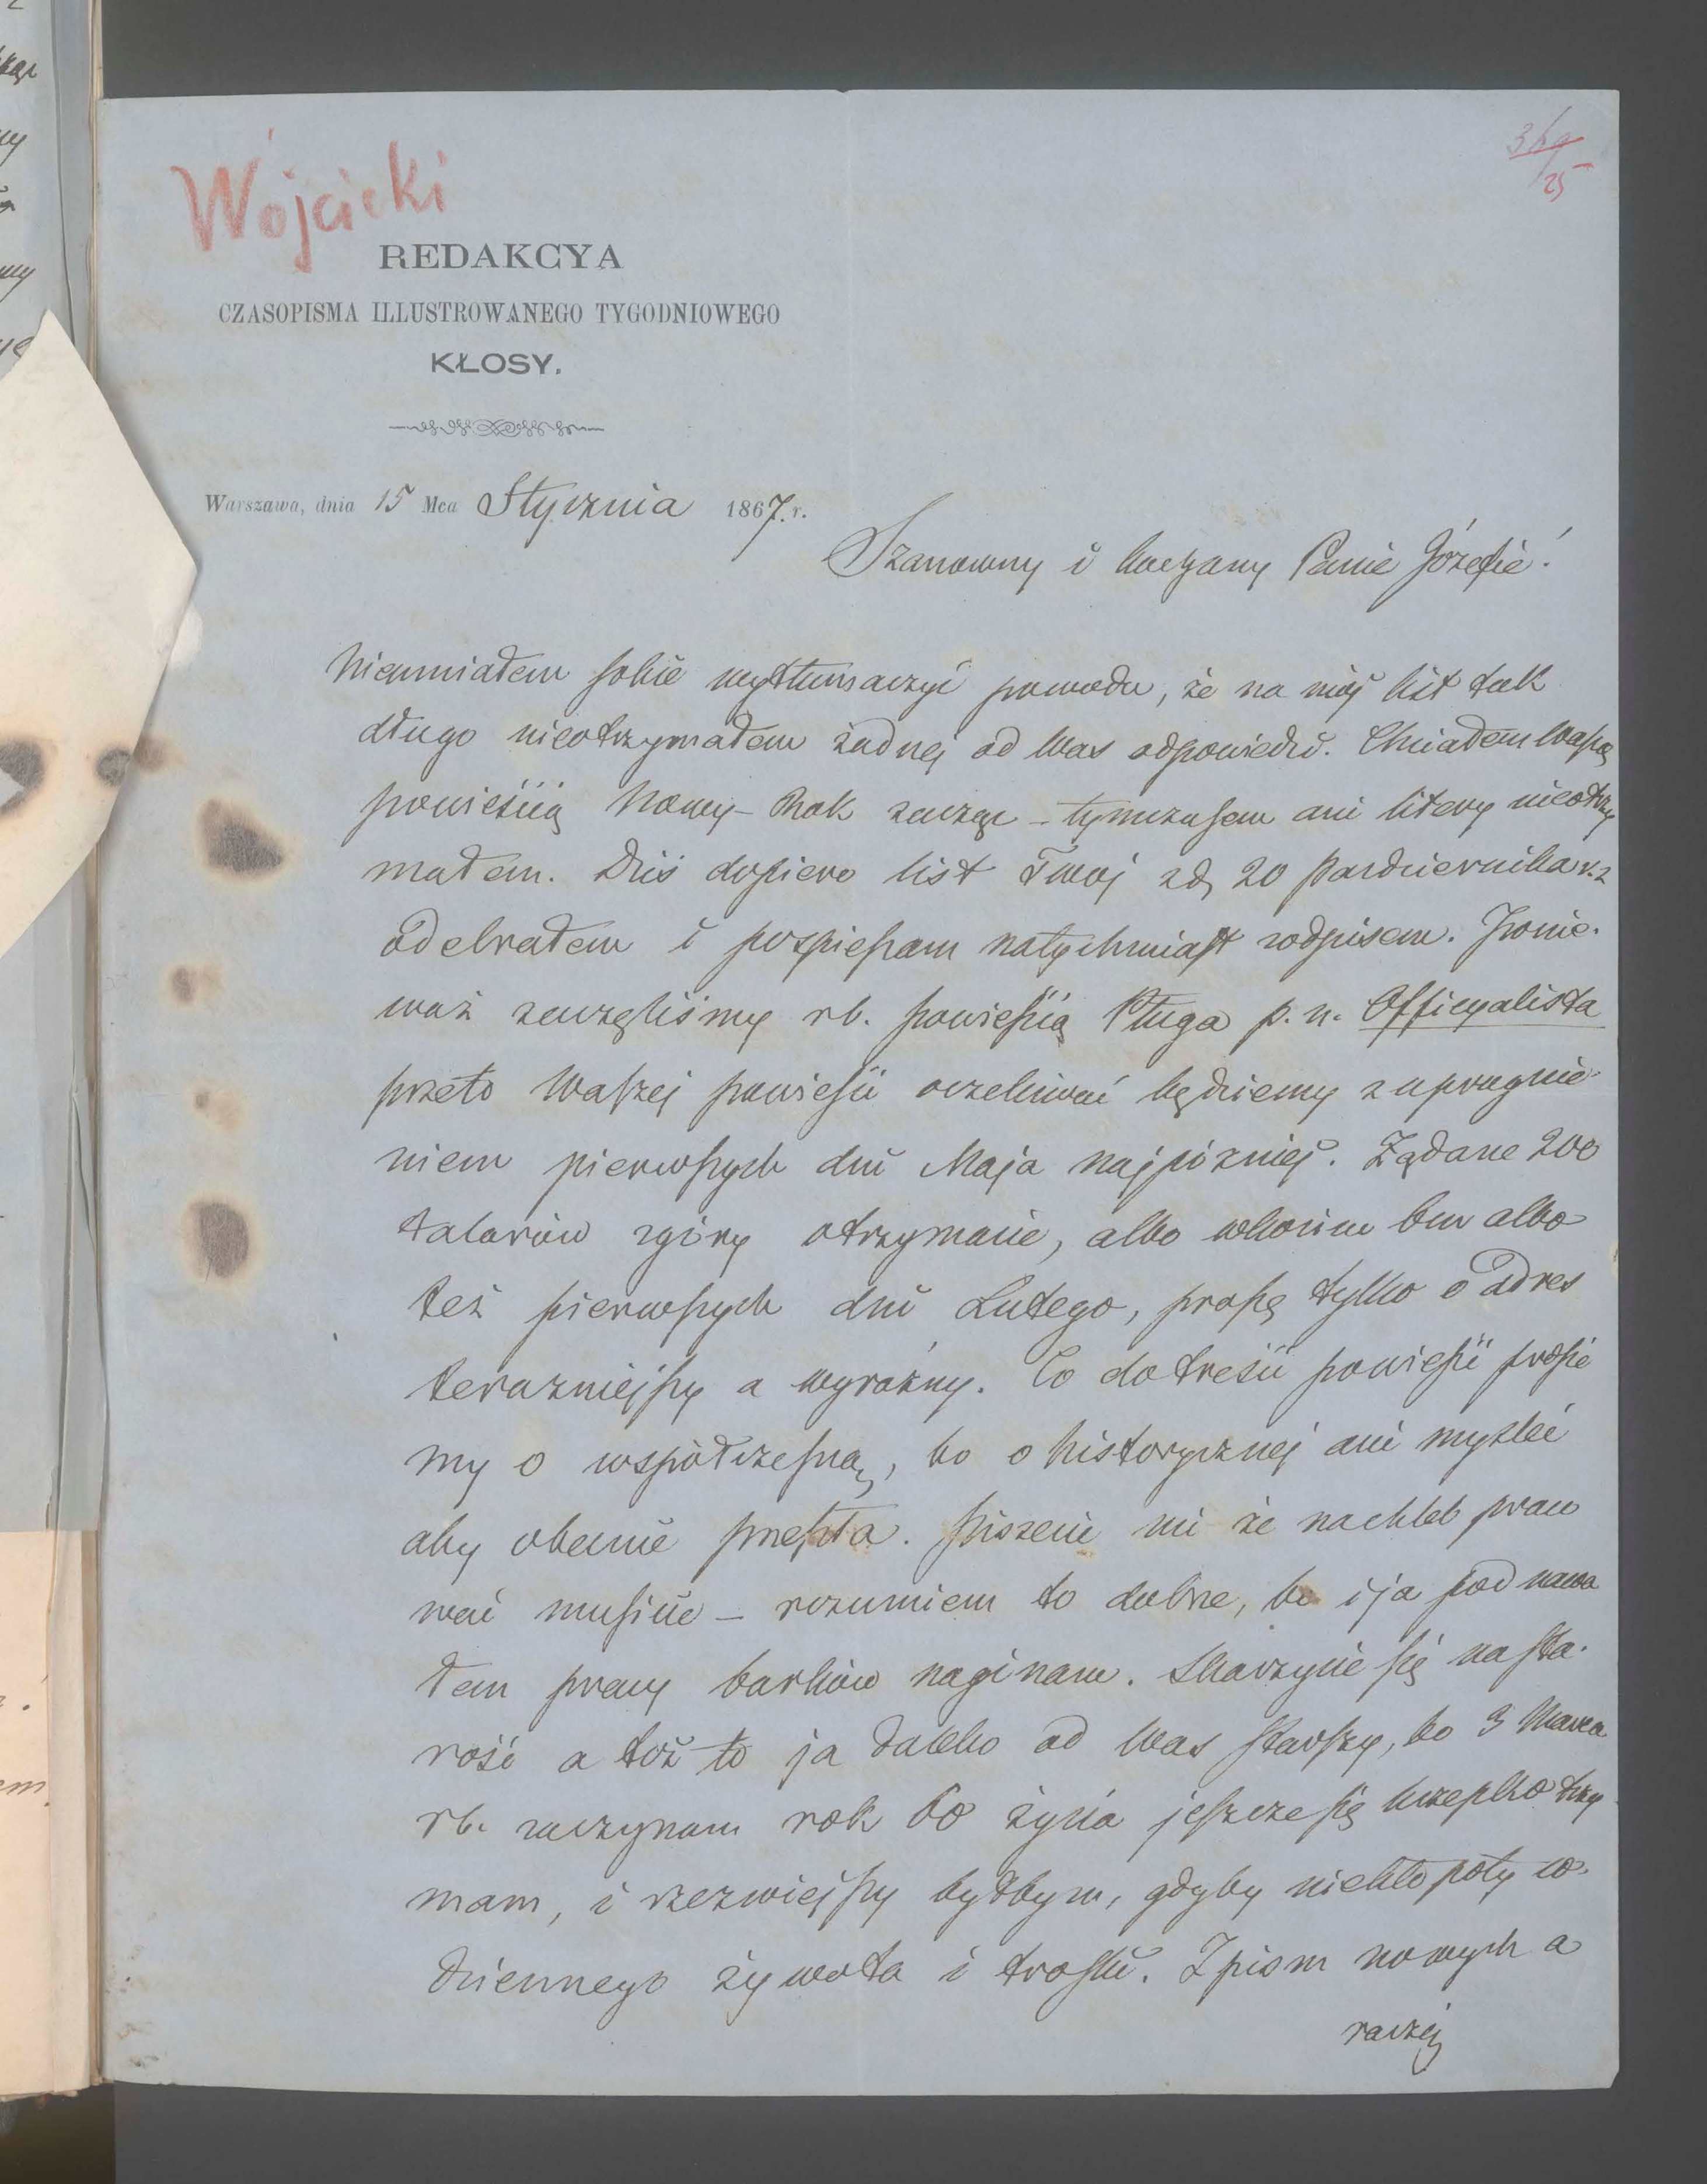 Wójcicki
REDAKCYA
CZASOPISMA ILLUSTROWANEGO TYGODNIOWEGO
KŁOSY.
Warszawa, dnia 15 Mca Stycznia 1867. r.
Szanowny i kochany Panie Józefie!
Nieumiałem sobie wytłumaczyć powodu, że na mój list tak
długo nieotrzymałem żadnej od Was odpowiedzi. Chciałem Waszą
powieścią Nowy-Rok zacząć – tymczasem ani litery nieotrzy
małem. Dziś dopiero list Twój zd, 20 Pazdziernika r.z
odebrałem i pospieszam natychmiast zodpisem. Ponie-
waż zaczęliśmy rb. powieścią Pługa p. n. Officyalista
przeto Waszej powieści oczekiwać będziemy z upragnie-
niem pierwszych dni Maja najpózniej. Żądane 200
talarów zgóry otrzymacie, albo wkońcu bm albo
też pierwszych dni Lutego, proszę tylko o adres
terazniejszy a wyraźny. Co do treści powieści prosie
my o współczesną, bo o historycznej ani myśleć
aby obecnie przeszła. Piszecie mi że nachleb praco
wać musicie – rozumiem to dobrze, bo i ja pod nawa
łem pracy barków naginam. Skarzycie się na sta-
rość a toż to ja daleko od Was starszy, bo 3 Marca
rb. zaczynam rok 60 życia jeszcze się krzepko trzy
mam, i rzezwiejszy byłbym, gdyby niekłopoty co-
dziennego żywota i troski. Z pism nowych a
raczej